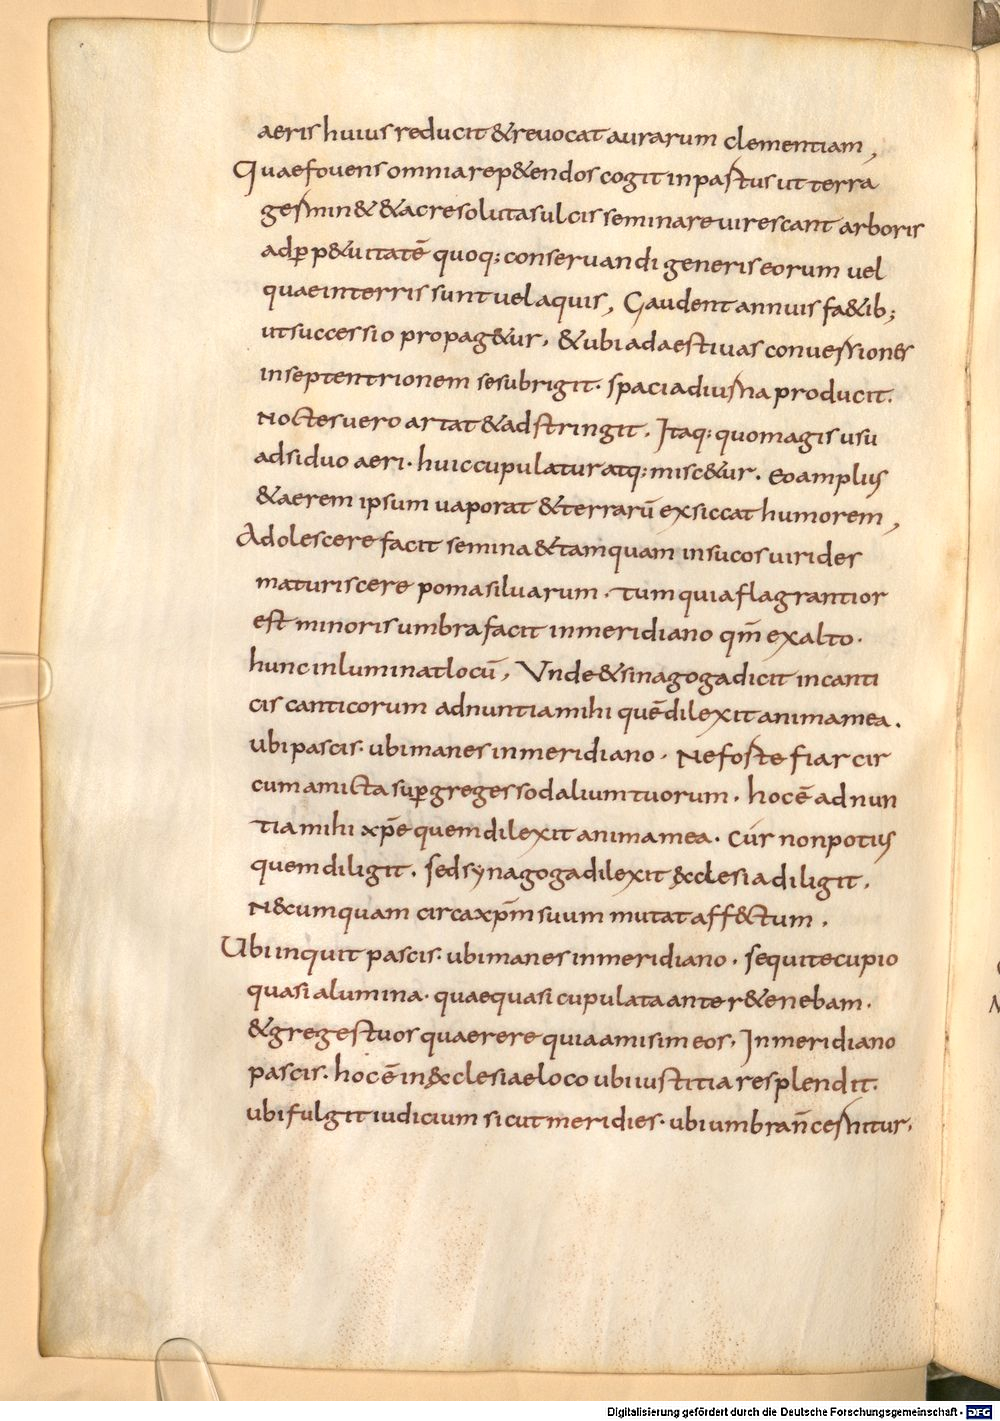 aeris huius reducit & reuocat aurarum clementiam,
Quae fouens omnia rep&endos cogit in pastus ut terra
germin& & acre soluta sulcis semina reuirescant arboris
adp̄p&uitatē quoq; conseruandi generis eorum uel
quae in terris sunt uel aquis, Gaudent annuis fa&ib;
ut successio propag&ur. & ubi ad aestiuas conuersiones
in septentrionem se subrigit. spacia diurna producit.
Noctes uero artat & adstringit. Itaq: quo magis usu
adsiduo aeri. huic cupulatur atq: misc&ur. eo amplius
& aerem ipsum uaporat & terrarū exsiccat humorem,
Adolescere facit semina & tamquam in sucos uirides
maturiscere poma siluarum. tum quia flagrantior
est minoris umbra facit in meridiano qm̄ ex alto.
hunc inluminat locū, Unde & sinagoga dicit in canti
cis canticorum adnuntia mihi quē dilexit anima mea.
ubi pascis. ubi manes in meridiano. Ne foste fiar cir
cumamicta sup̄ greges sodalium tuorum. hoc ē adnun
tia mihi xp̄e quem dilexit anima mea. Cur non potius
quem diligit. sed synagoga dilexit ecclesia diligit.
N&cumquam circa xp̄m suum mutat aff&ctum.
Ubi inquit pascis. ubi manes in meridiano. sequi te cupio
quasi alumna. quae quasi cupulata ante r&enebam.
& greges tuos quaerere quia amisi meos. In meridiano
pascis. hoc ē in ecclesiae loco ubi iustitia resplendit.
ubi fulgit iudicium sicut meridies. ubi umbra n̄ cernitur.
Digitalisierung gefördert durch die Deutsche Forschungsgemeinschaft - DFG